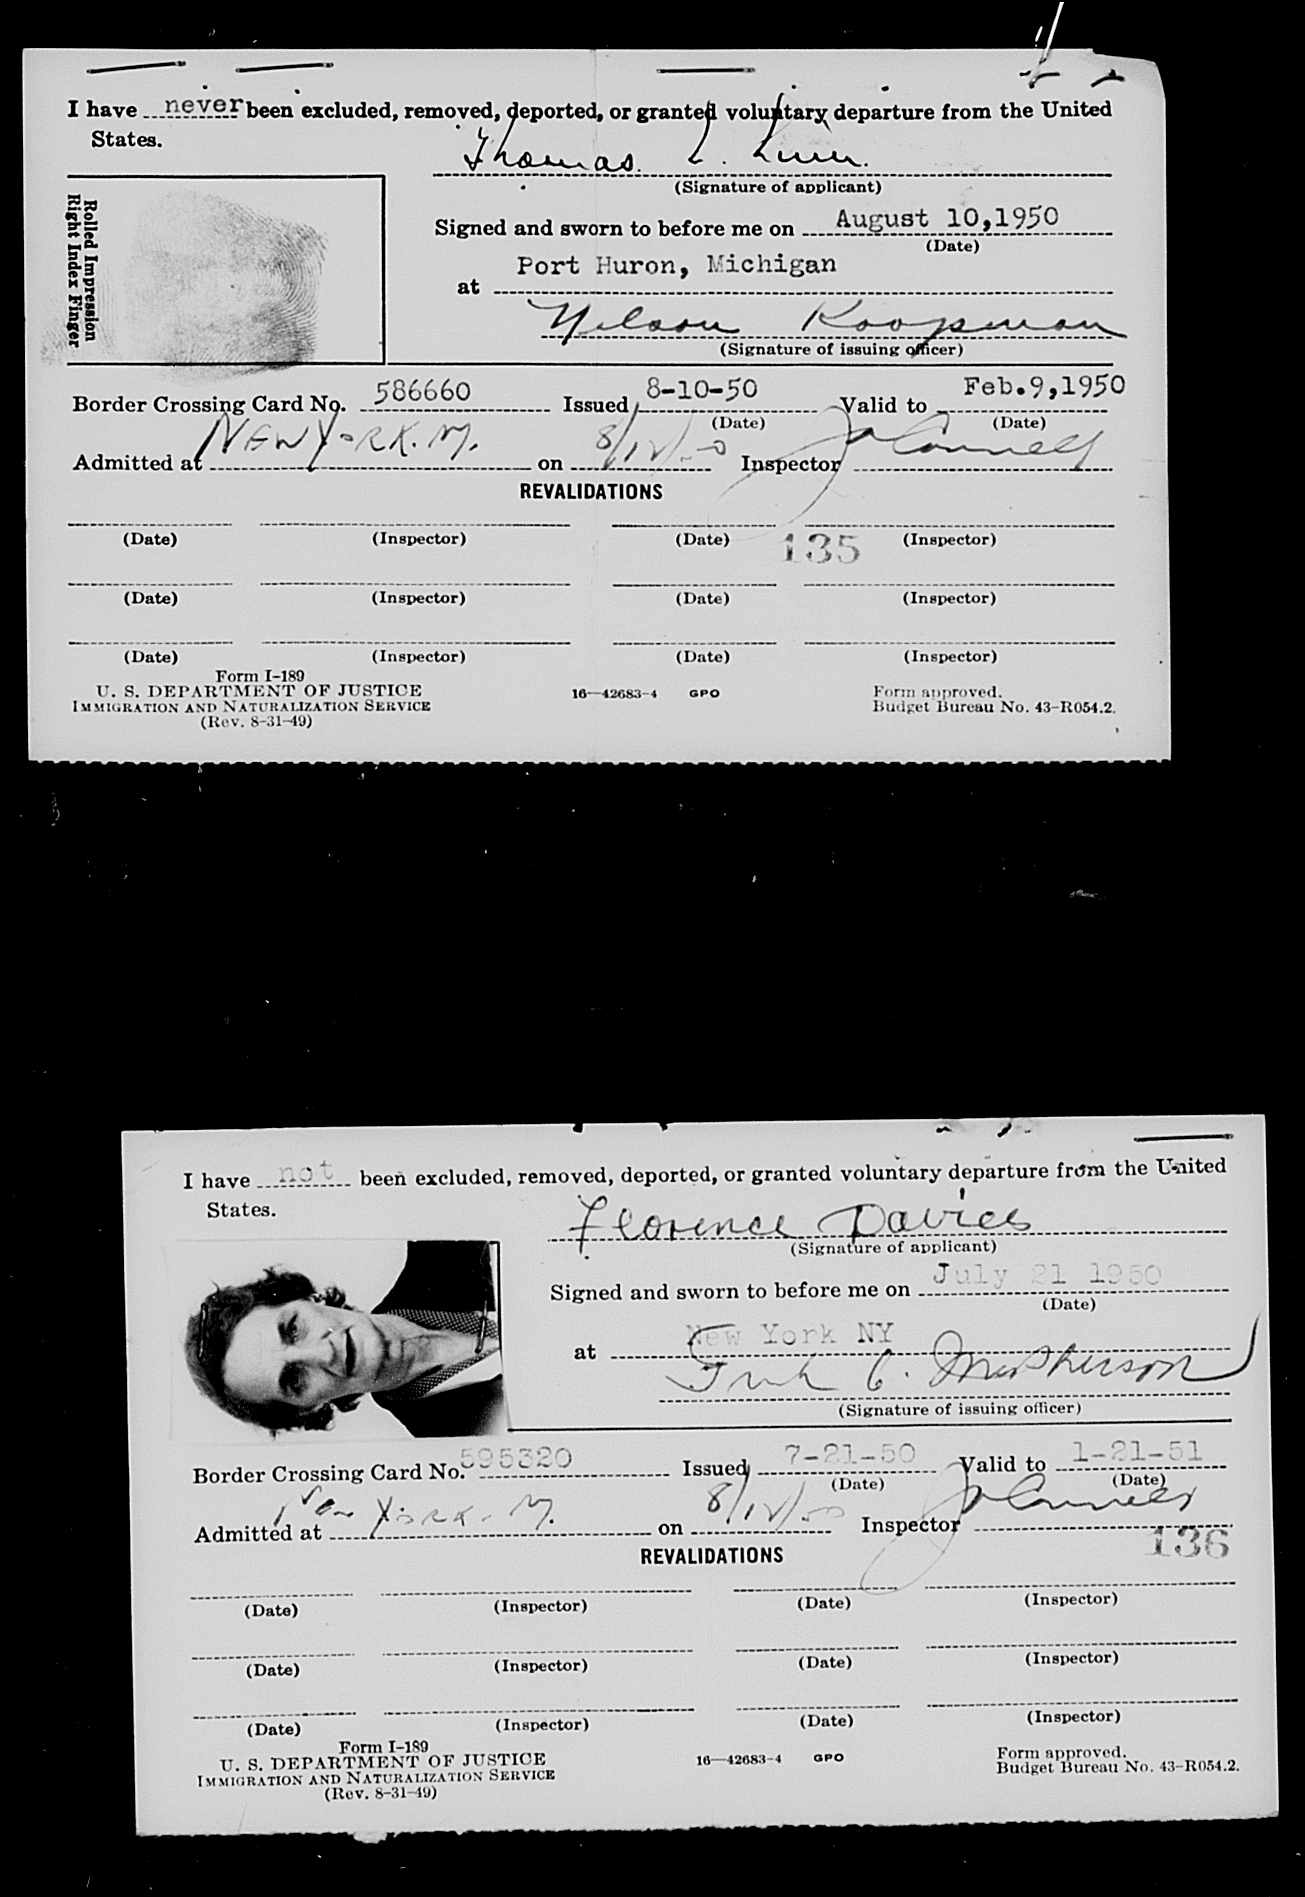 I have never been excluded, removed, deported, or granted voluntary departure from the United
States.
Thomas L.
(Signature of applicant)
Rolled Impression
Right Index Finger
Signed and sworn to before me on August 10,1950
(Date)
Port Huron, Michigan
at
Nelson Koopman
(Signature of issuing officer)
Border Crossing Card No. 586660 Issued 8-10-50 Valid to Feb.9,1950
(Date) (Date)
Admitted at NEW YORK. NY. on 8/12/50 Inspector
REVALIDATIONS
(Date) (Inspector) (Date) 135 (Inspector)
(Date) (Inspector) (Date) (Inspector)
(Date) (Inspector) (Date) (Inspector)
Form I-189
U. S. DEPARTMENT OF JUSTICE 16—42683-4 GPO Form approved.
IMMIGRATION AND NATURALIZATION SERVICE Budget Bureau No. 43-R054.2.
(Rev. 8-31-49)
I have not been excluded, removed, deported, or granted voluntary departure from the United
States.
Florence Davies
(Signature of applicant)
Signed and sworn to before me on July 21 1950
(Date)
at New York NY
C. McPherson
(Signature of issuing officer)
Border Crossing Card No. 595320 Issued 7-21-50 Valid to 1-21-51
(Date) (Date)
Admitted at New York. NY. on 8/12/50 Inspector
136
REVALIDATIONS
(Date) (Inspector) (Date) (Inspector)
(Date) (Inspector) (Date) (Inspector)
(Date) (Inspector) (Date) (Inspector)
Form I-189
U. S. DEPARTMENT OF JUSTICE 16—42683-4 GPO Form approved.
IMMIGRATION AND NATURALIZATION SERVICE Budget Bureau No. 43-R054.2.
(Rev. 8-31-49)